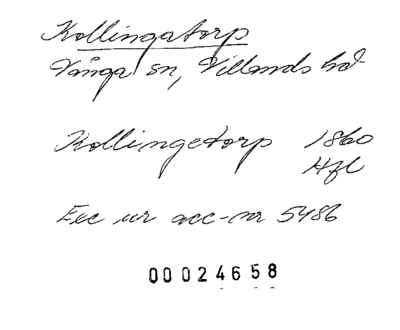 Kollingatorp
Vånga sn, Villands hd
Kollingetorp 1860
Hfl
Exc ur acc-nr 5486
00024658